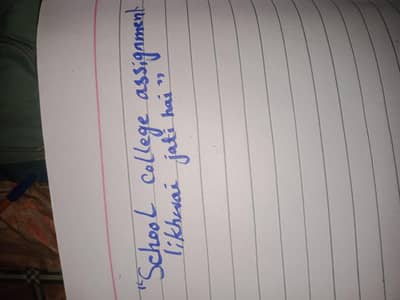 "School college assignment
likhwai jati hai"